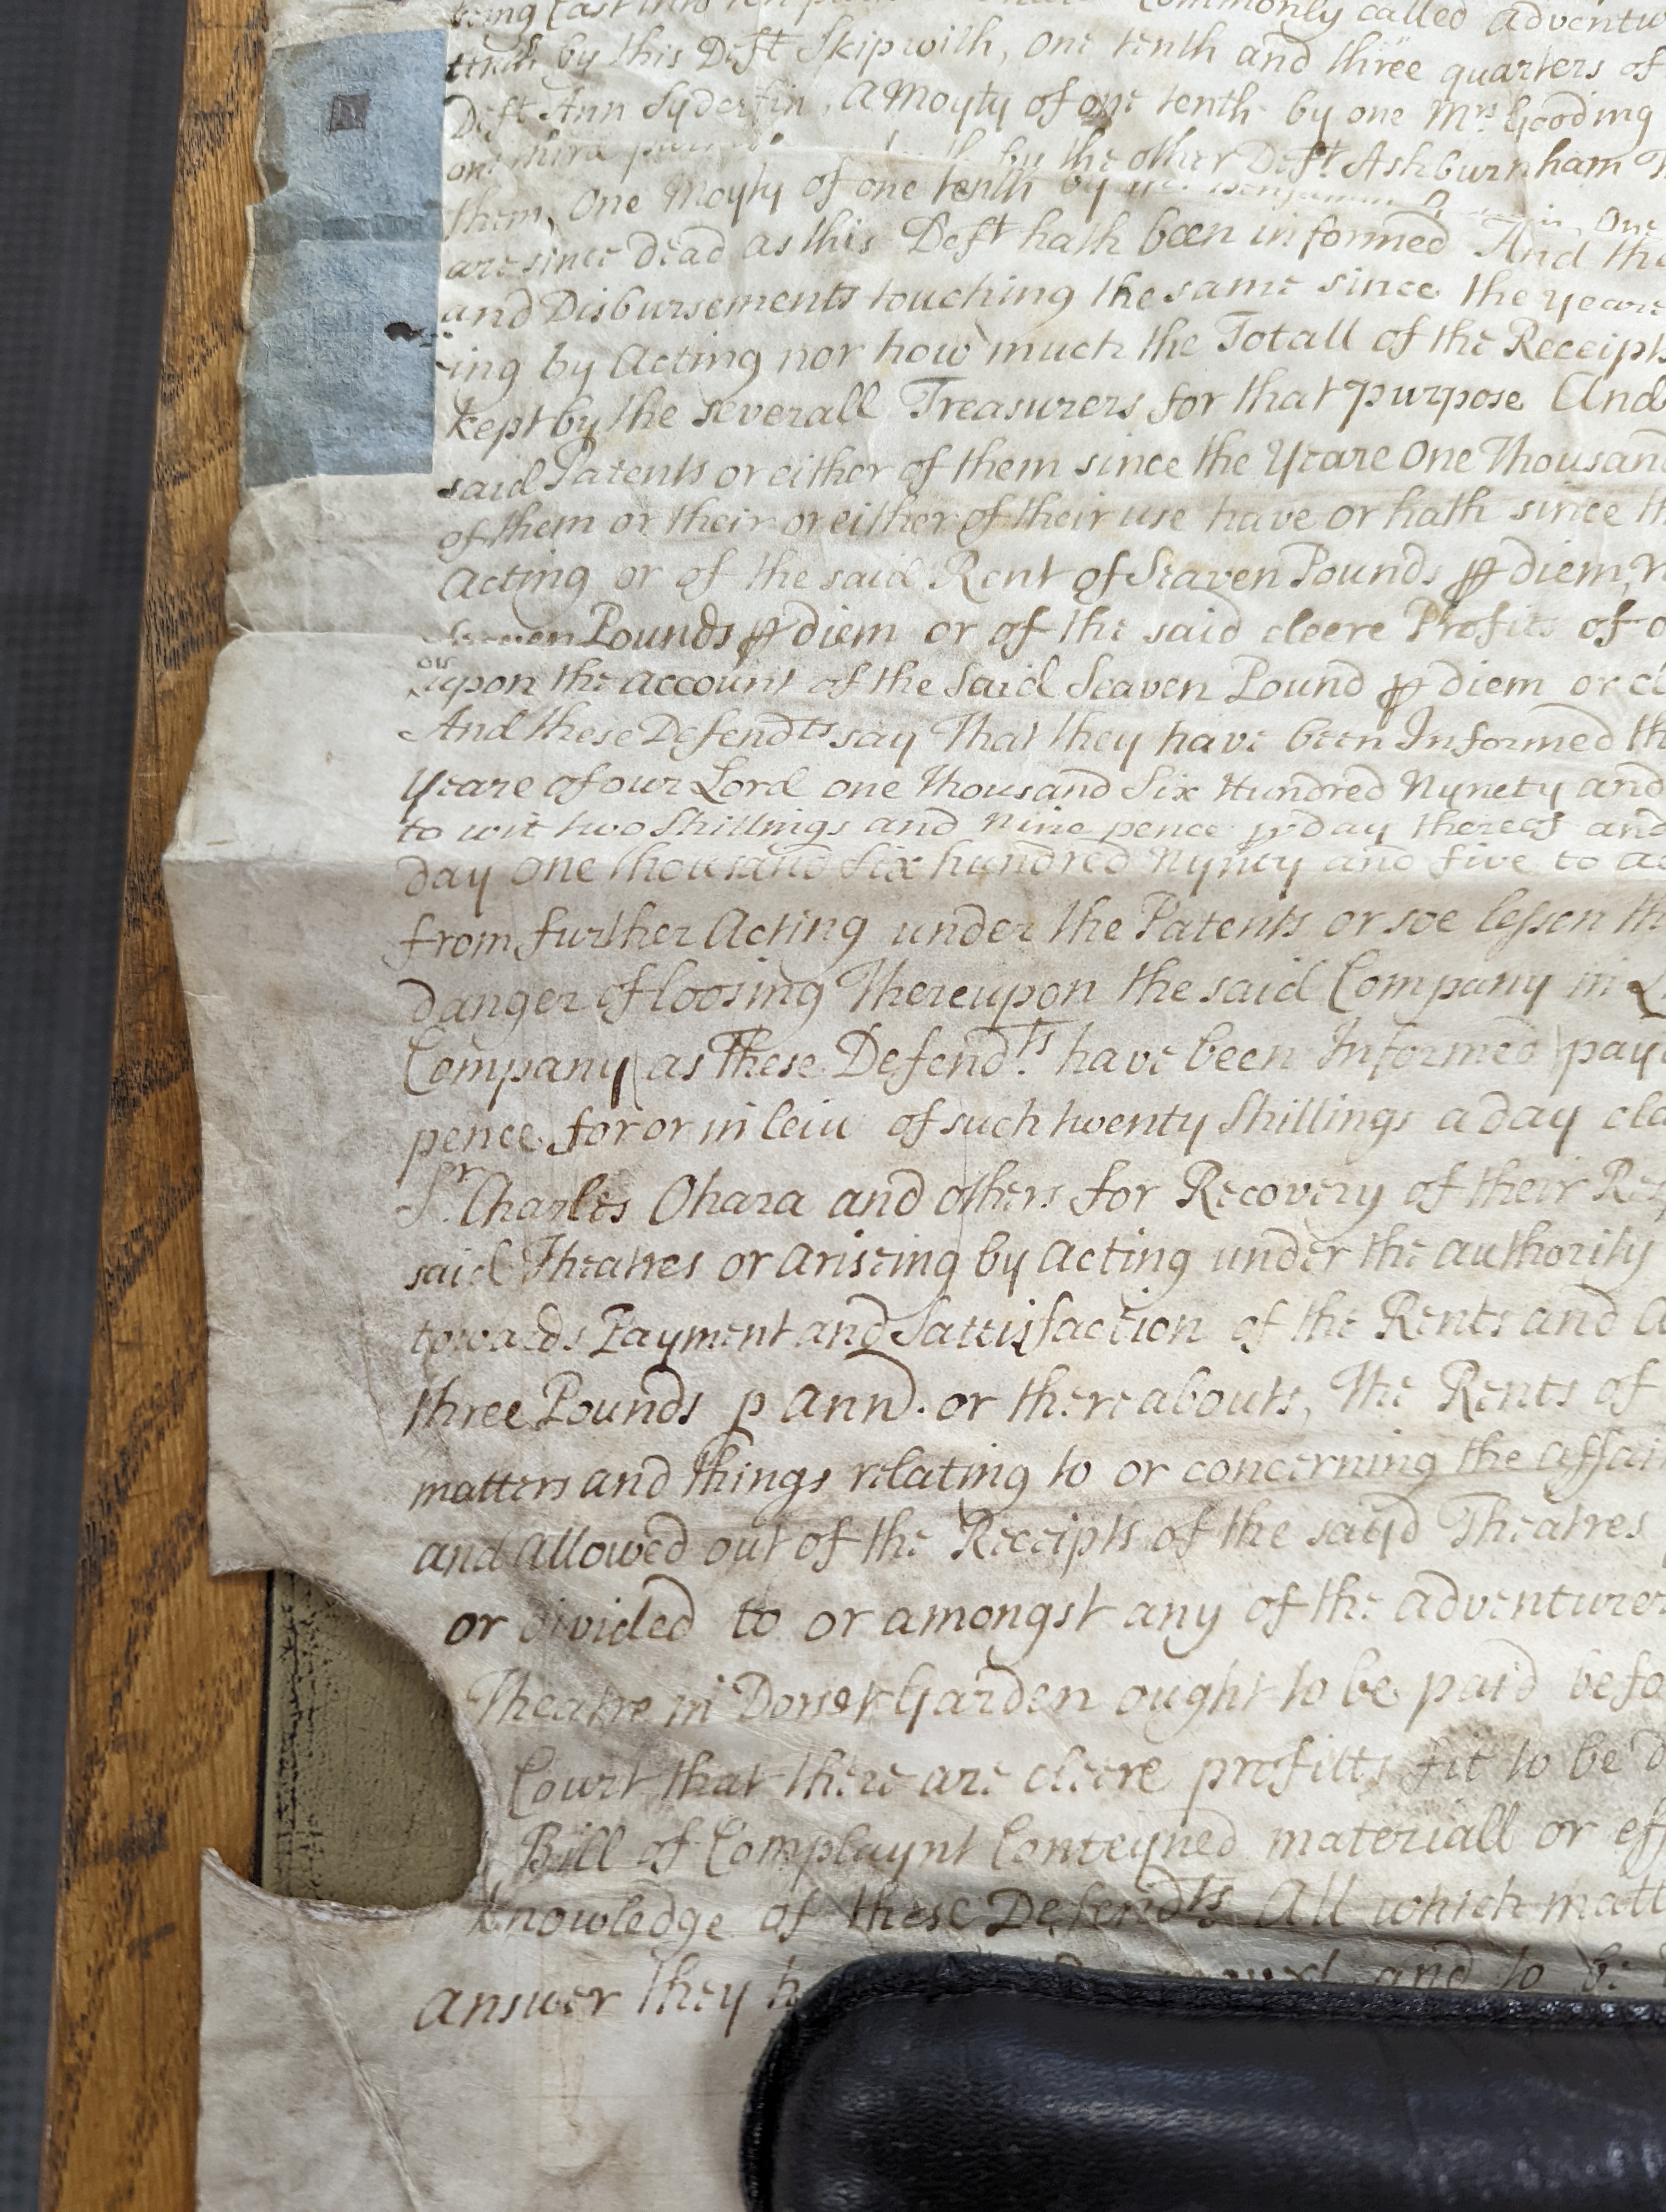 being Cast into ten commonly called adventu
by this Deft Skipwith, one tenth and three quarters of
Deft Ann Syderfin, a Moyty of one tenth by one Mrs Gooding
one third by the other Deft Ashburnham
them, One Moyty of one tenth by One
are since dead as this Deft hath been informed And the
and Disbursements touching the same since the yeare
ing by Acting nor how much the Totall of the Receipts
kept by the severall Treasurers for that purpose And
said Patents or either of them since the Yeare One Thousand
of them or their or either of their use have or hath since th
Acting or of the said Rent of Seaven Pounds p diem,
Seaven Pounds p diem or of the said cleere Profits of
or upon the account of the said Seaven Pound p diem or cl
And these Defendts say That they have been Informed th
Yeare of our Lord one Thousand Six Hundred Nynety and
to wit two Shillings and nine pence pr day thereof and
day One Thousand Six hundred Nynty and five to
from further Acting under the Patents or soe lessen th
danger of loosing Thereupon the said Company in
Company (as These Defendts have been Informed) pay
pence for or in leiu of such twenty Shillings a day cla
Sr. Charles Ohara and others for Recovery of their Re
said Theatres or ariseing by acting under the authority
towards Payment and Sattisfaction of the Rents and
three Pounds p Ann. or thereabouts, The Rents of
matters and things relating to or concerning the affai
and allowed out of the Receipts of the sayd Theatres
or divided to or amongst any of the adventurer
Theatre in Dorset Garden ought to be paid befo
Court that there are cleere profitts fit to be d
Bill of Complaynt Conteyned materiall or eff
knowledge of these Defendts All which matt
answer they h and to be